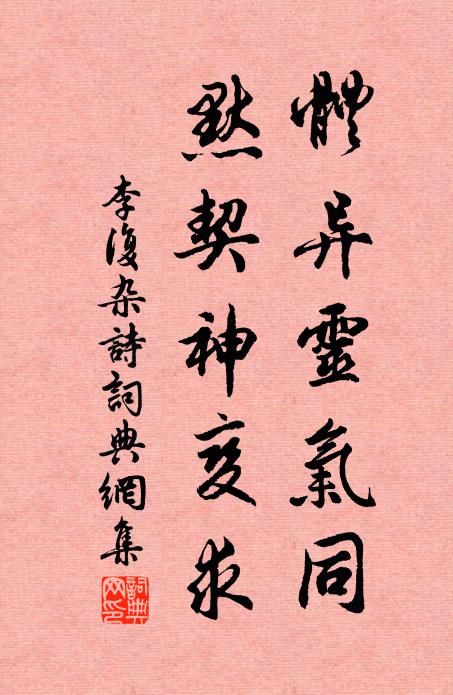 體异靈氣同
黙契神交求
李復杂詩詞典網集
詞典网印